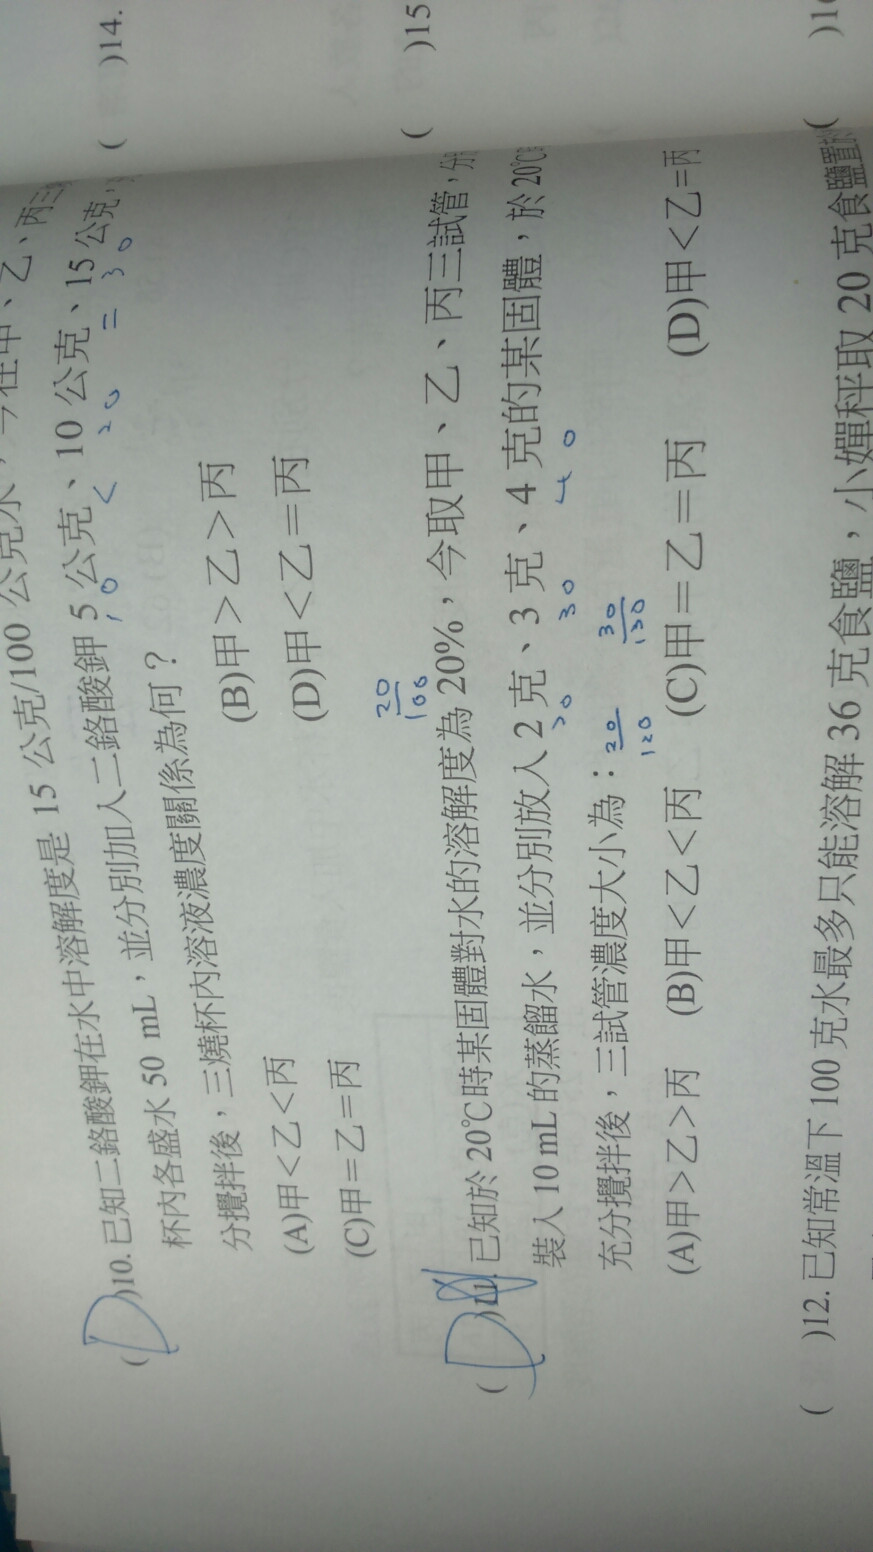 水中溶解度是 15 公克/100 公克水，今在甲、乙、丙三
D
( )10. 已知二鉻酸鉀在水中溶解度是 15 公克/100 公克水，
杯內各盛水 50 mL，並分別加入二鉻酸鉀 5 公克、10 公克、15 公克，
10 < 20 = 30
分攪拌後，三燒杯內溶液濃度關係為何？
(A)甲＜乙＜丙 (B)甲＞乙＞丙
(C)甲＝乙＝丙 (D)甲＜乙＝丙
20
100
D
( )11. 已知於 20℃時某固體對水的溶解度為 20%，今取甲、乙、丙三試管，分
裝入 10 mL 的蒸餾水，並分別放入 2 克、3 克、4 克的某固體，於 20℃
30 40
充分攪拌後，三試管濃度大小為：
20 30
120 130
(A)甲＞乙＞丙 (B)甲＜乙＜丙 (C)甲＝乙＝丙 (D)甲＜乙＝丙
( )12. 已知常溫下 100 克水最多只能溶解 36 克食鹽，小嬋秤取 20 克食鹽置於
( )14.
( )15
( )1